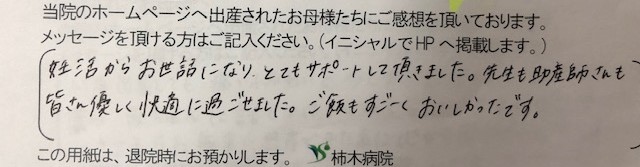 当院のホームページへ出産されたお母様たちにご感想を頂いております。
メッセージを頂ける方はご記入ください。(イニシャルでHPへ掲載します。)
妊活からお世話になり、とてもサポートして頂きました。先生も助産師さんも
皆さん優しく快適に過ごせました。ご飯もすごーくおいしかったです。
この用紙は、退院時にお預かりします。 柿木病院